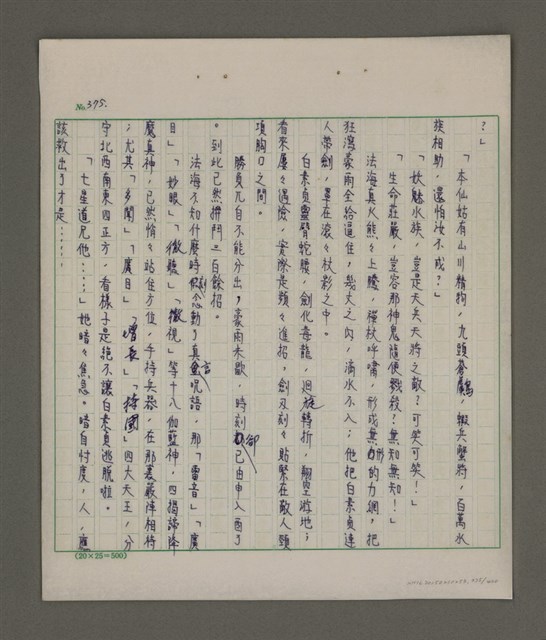 No. 375.
？」
「本仙姑有山川精狗，九頭蒼鷹，蝦兵蟹將，百萬水
族相助，還怕汝不成？」
「妖魅水族，豈是天兵天將之敵？可笑可笑！」
「生命莊嚴，豈容那神鬼隨便戮殺？無知無知！」
法海真火熊々上騰，禪杖呼嘯，形成無形的力網，把
狂瀉豪雨全給逼住，幾丈之內，滴水不入；他把白素貞連
人帶劍，罩在滾々杖影之中。
白素貞靈臂蛇腰，劍化毒龍，迴旋轉折，翺空游地；
看來屢々遇險，實際是頻々進招，劍刃刻々貼緊在敵人頸
項胸口之間。
勝負兀自不能分出，豪雨未歇，時刻卻已由申入酉了
。到此已然拚鬥二百餘招。
法海不知什麼時刻念動了真言咒語，那「雷音」「廣
目」「妙眼」「徹聽」「徹視」等十八伽藍神，四揭諦降
魔真神，已然悄々站住方位，手持兵器，在那裏嚴陣相待
；尤其「多聞」「廣目」「增長」「持國」四大天王，分
守北西南東四正方，看樣子是絕不讓白素貞逃脫啦。
「七星道兄他……」她暗々焦急。暗自忖度，人，應
該救出了才是……
(20×25=500)